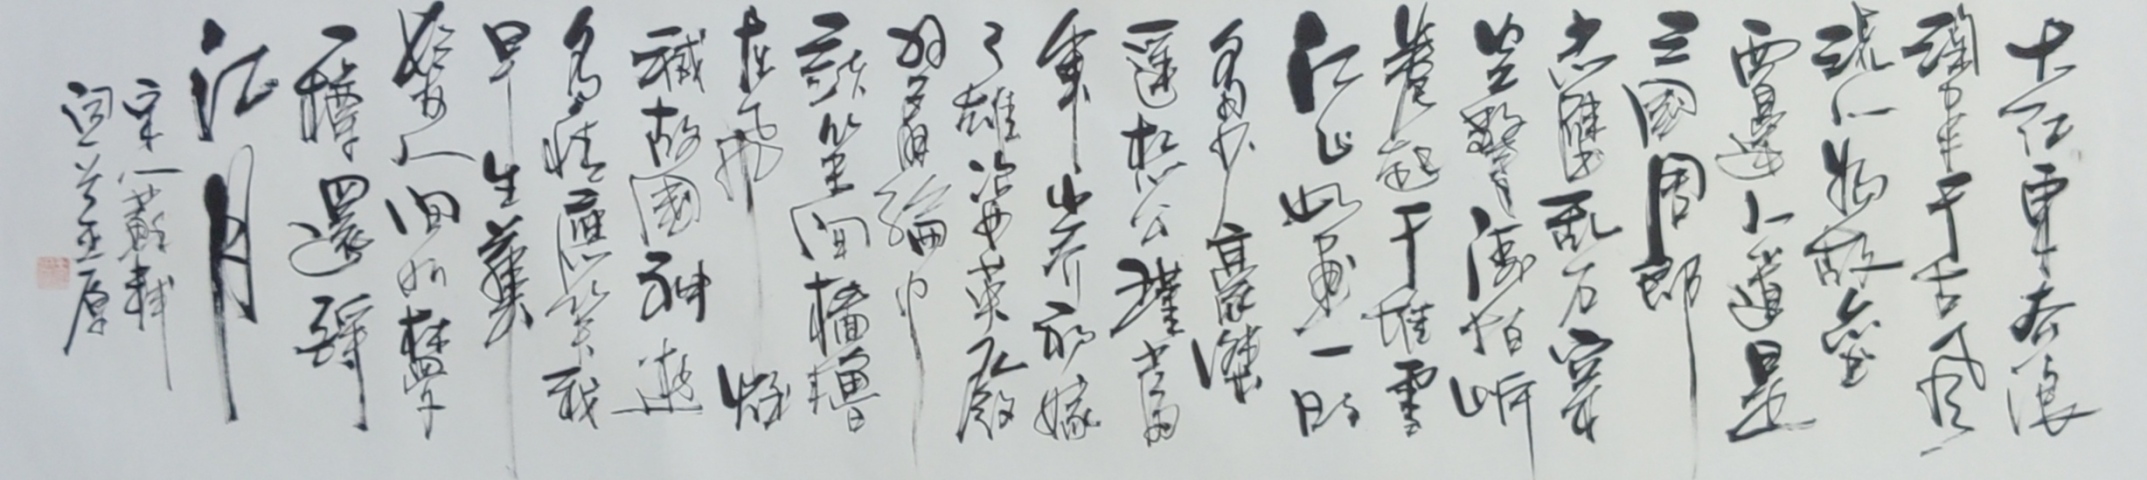 大江東去浪
淘盡千古風
流人物故壘
西邊人道是
三國周郎
赤壁乱石穿
空驚濤拍岸
卷起千堆雪
江山如畫一時
多少豪傑
遥想公瑾當
年小喬初嫁
了雄姿英發
羽扇綸巾
談笑間檣櫓
灰飛烟
滅故國神遊
多情應笑我
早生華
髮人间如夢
一樽還酹
江月
宋人蘇軾
詞